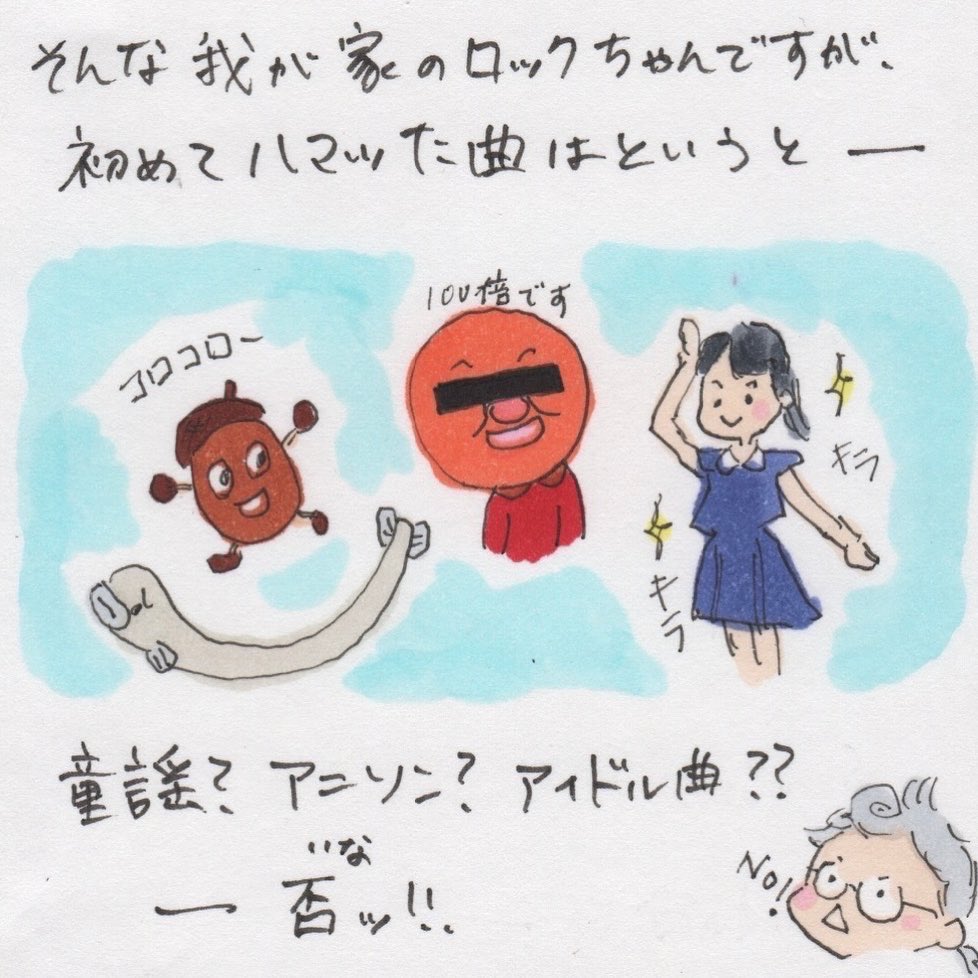 そんな我が家のロックちゃんですが、
初めてハマッた曲はというと ー
100倍です
コロコロー
キラ
キラ
童謡? アニソン? アイドル曲??
いな
ー 否ッ!!
No!